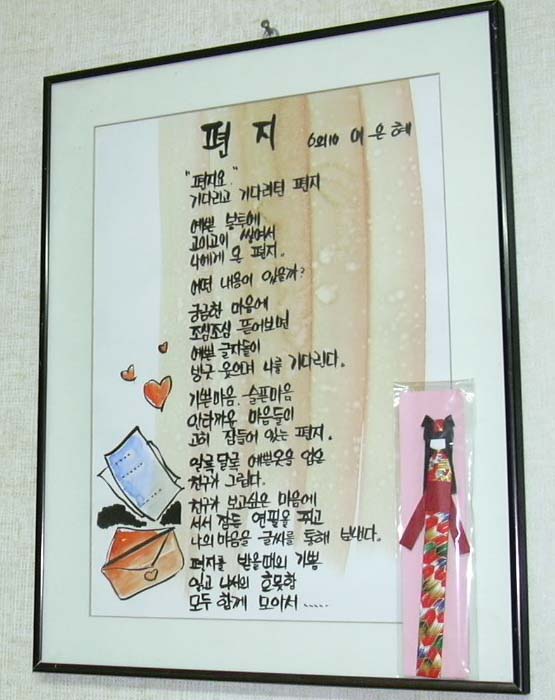 편지 6의10 이은혜
"편지요."
기다리고 기다리던 편지
예쁜 봉투에
고이고이 씌여서
나에게 온 편지.
어떤 내용이 있을까?
궁금한 마음에
조심조심 뜯어보면
예쁜 글자들이
방긋 웃으며 나를 기다린다.
기쁜마음 슬픈마음
안타까운 마음들이
고히 잠들어 있는 편지.
알록달록 예쁜옷을 입은
친구가 그립다.
친구가 보고싶은 마음에
서서 잠든 연필을 쥐고
나의 마음을 글씨를 통해 보낸다.
편지를 받을때의 기쁨
읽고 나서의 흐뭇함
모두 함께 모아서 .....